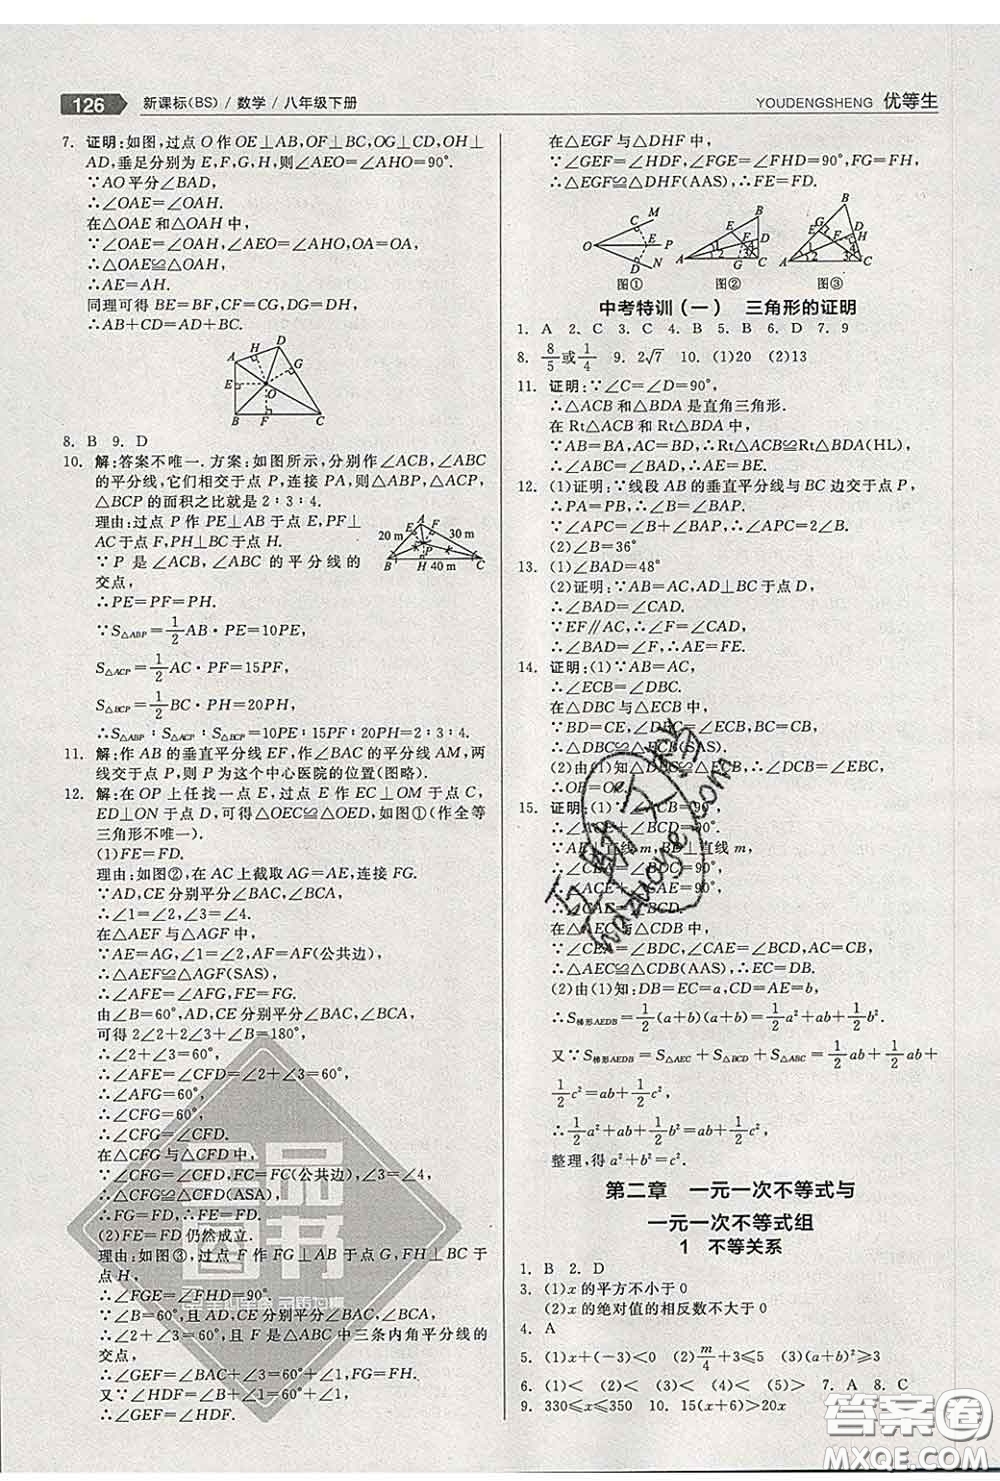 126 新课标(BS) / 数学 / 八年级下册
YOUDENGSHENG 优等生
7. 证明:如图,过点 O 作 OE⊥AB,OF⊥BC,OG⊥CD,OH⊥
AD,垂足分别为 E,F,G,H,则∠AEO=∠AHO=90°.
∵AO平分∠BAD,
∴∠OAE=∠OAH.
在△OAE 和△OAH 中,
∵∠OAE=∠OAH,∠AEO=∠AHO,OA=OA,
∴△OAE≌△OAH,
∴AE=AH.
同理可得 BE=BF,CF=CG,DG=DH,
∴AB+CD=BC+AD.
A B C D E F G H O
8. B 9. D
10. 解:答案不唯一. 方案:如图所示,分别作∠ACB,∠ABC
的平分线,它们相交于点 P,连接 PA,则△ABP,△ACP,
△BCP 的面积之比就是 2∶3∶4.
理由:过点 P 作 PE⊥AB 于点 E,PF⊥
AC 于点 F,PH⊥BC 于点 H.
∵P 是∠ACB,∠ABC 的平分线的
交点,
∴PE=PF=PH.
20 m E A F 30 m
P
B H 40 m C
∵S△ABP=1/2AB·PE=10PE,
S△ACP=1/2AC·PF=15PF,
S△BCP=1/2BC·PH=20PH,
∴S△ABP∶S△ACP∶S△BCP=10PE∶15PF∶20PH=2∶3∶4.
11. 解:作 AB 的垂直平分线 EF,作∠BAC 的平分线 AM,两
线交于点 P,则 P 为这个中心医院的位置(图略).
12. 解:在 OP 上任找一点 E,过点 E 分别作 CE⊥OM 于点 C,
ED⊥ON 于点 D,可得△OEC≌△OED,如图①(作全等
三角形不唯一).
(1)FE=FD.
理由:如图②,在 AC 上截取 AG=AE,连接 FG.
∵AD,CE 分别平分∠BAC,∠BCA,
∴∠1=∠2,∠3=∠4.
在△AEF 与△AGF 中,
∵AE=AG,∠1=∠2,AF=AF(公共边),
∴△AEF≌△AGF(SAS),
∴∠AFE=∠AFG,FE=FG,
由∠B=60°,AD,CE 分别平分∠BAC,∠BCA,
可得 2∠2+2∠3+∠B=180°,
∴∠2+∠3=60°,
∴∠AFE=∠CFD=∠2+∠3=60°,
∴∠AFG=60°,
∴∠CFG=60°,
∴∠CFG=∠CFD.
在△CFG 与△CFD 中,
∵∠CFG=∠CFD,FC=FC(公共边),∠3=∠4,
∴△CFG≌△CFD(ASA),
∴FG=FD,∴FE=FD.
(2)FE=FD仍然成立.
理由:如图③,过点 F 作 FG⊥AB 于点 G,FH⊥BC 于
点 H,
∴∠FGE=∠FHD=90°.
∵∠B=60°,且 AD,CE 分别平分∠BAC,∠BCA,
∴∠2+∠3=60°,且 F 是△ABC 中三条内角平分线的
交点,
∴∠GEF=∠BAC+∠3=60°+∠1,FG=FH.
又∵∠HDF=∠B+∠1=60°+∠1,
∴∠GEF=∠HDF.
在△EGF 与△DHF 中,
∵∠GEF=∠HDF,∠FGE=∠FHD=90°,FG=FH,
∴△EGF≌△DHF(AAS),∴FE=FD.
图① 图② 图③
中考特训(一) 三角形的证明
1. A 2. C 3. C 4. B 5. B 6. D 7. 9
8. 8/5或1/4 9. 2√7 10. (1)20 (2)13
11. 证明:∵∠C=∠D=90°,
∴△ACB 和△BDA 是直角三角形.
在 Rt△ACB 和 Rt△BDA 中,
∵AB=BA,AC=BD,∴Rt△ACB≌Rt△BDA(HL),
∴∠ABC=∠BAD,∴AE=BE.
12. (1)证明:∵线段 AB 的垂直平分线与 BC 边交于点 P,
∴PA=PB,∴∠B=∠BAP.
∵∠APC=∠B+∠BAP,∴∠APC=2∠B.
(2)∠B=36°
13. (1)∠BAD=48°
(2)证明:∵AB=AC,AD⊥BC 于点 D,
∴∠BAD=∠CAD.
∵EF∥AC,∴∠F=∠CAD,
∴∠BAD=∠F,∴AE=FE.
14. 证明:(1)∵AB=AC,
∴∠ECB=∠DBC.
在△DBC 与△ECB 中,
∵BD=CE,∠DBC=∠ECB,BC=CB,
∴△DBC≌△ECB(SAS).
(2)由(1)知△DBC≌△ECB,∴∠DCB=∠EBC,
∴OB=OC.
15. 证明:(1)∵∠ACB=90°,
∴∠ACE+∠BCD=90°.
∵AE⊥直线 m,BD⊥直线 m,
∴∠CEA=∠BDC=90°,
∴∠ACE+∠CAE=90°,
∴∠CAE=∠BCD.
在△AEC 与△CDB 中,
∵∠CEA=∠BDC,∠CAE=∠BCD,AC=CB,
∴△AEC≌△CDB(AAS),∴EC=DB.
(2)由(1)知:DB=EC=a,CD=AE=b,
∴S梯形AEDB=1/2(a+b)(a+b)=1/2a²+ab+1/2b².
又∵S梯形AEDB=S△AEC+S△BCD+S△ABC=1/2ab+1/2ab+
1/2c²=ab+1/2c²,
∴1/2a²+ab+1/2b²=ab+1/2c²,
整理,得 a²+b²=c².
第二章 一元一次不等式与
一元一次不等式组
1 不等关系
1. B 2. D
3. (1)x 的平方不小于 0
(2)x 的绝对值的相反数不大于 0
4. A
5. (1)x+(-3)<0 (2)m/4+3≤5 (3)(a+b)²≥3
6. (1)< (2)< (3)< (4)< 7. A 8. C
9. 330≤x≤350 10. 15(x+6)>20x
答案圈
MXQE.COM